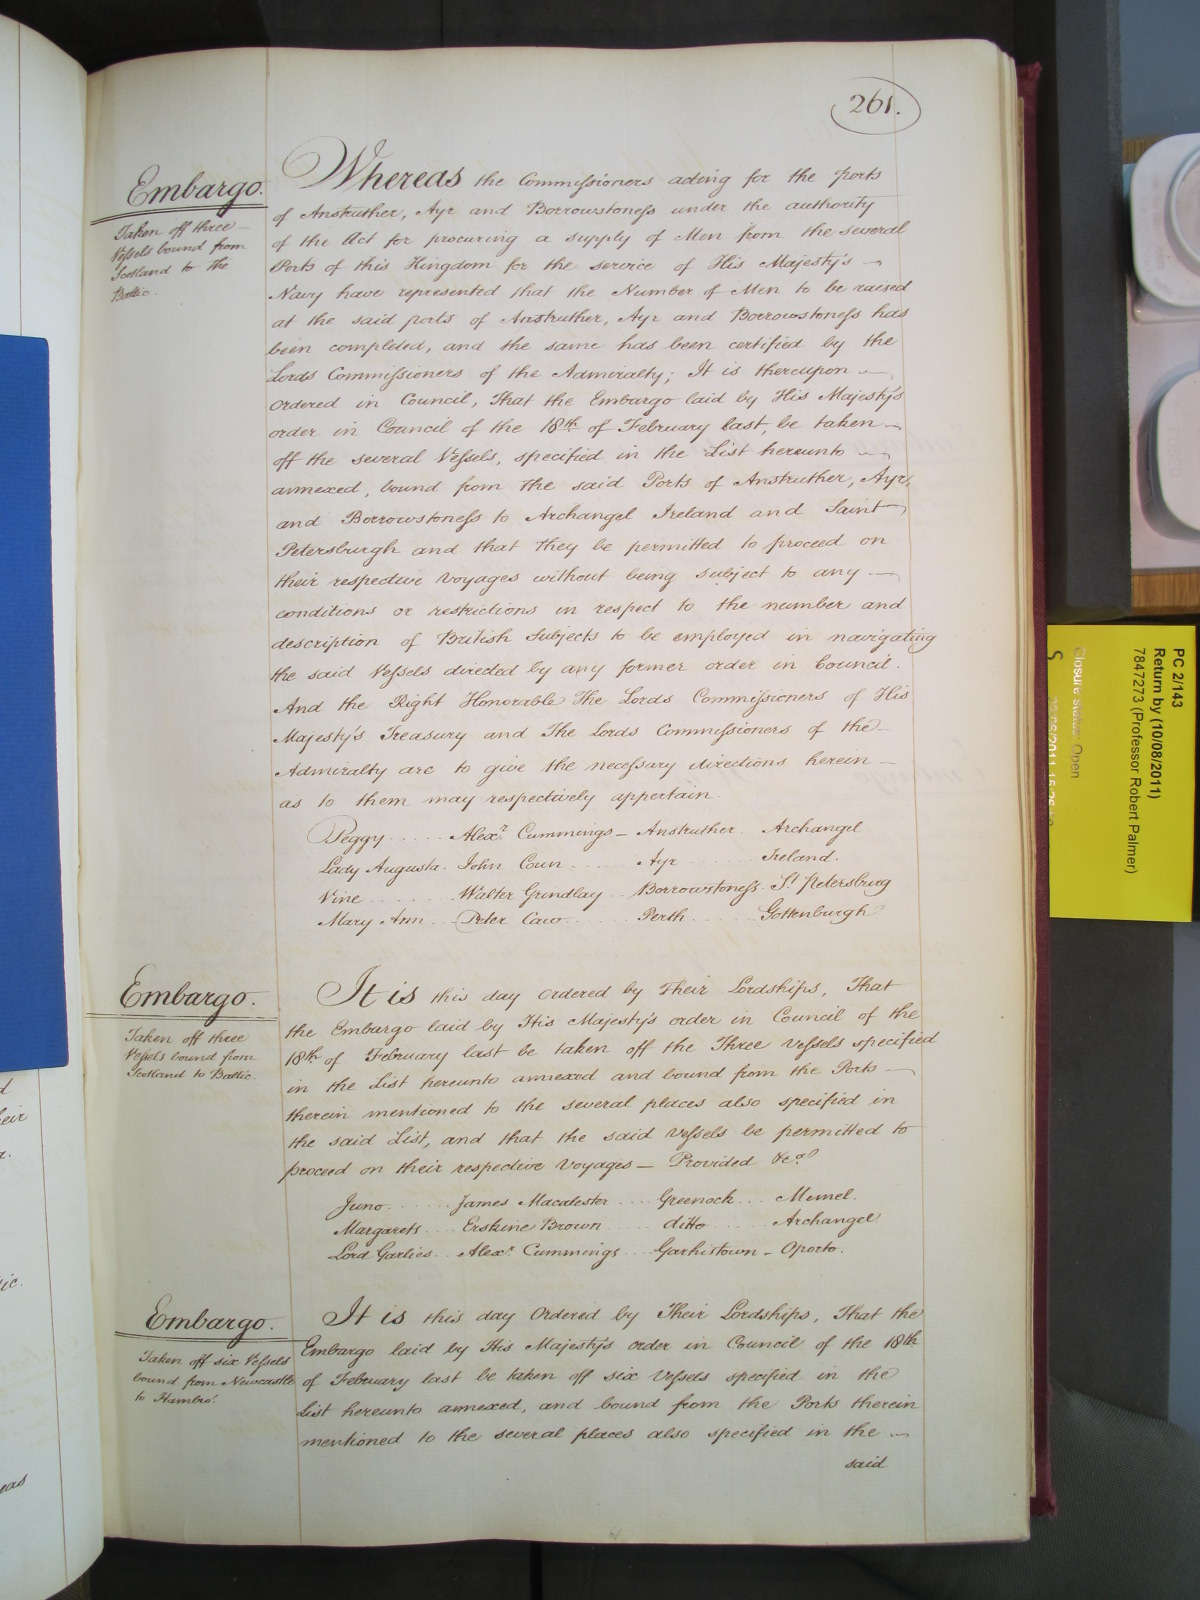 261.
Embargo.
Taken off three
Vessels bound from
Scotland to the
Baltic.
Whereas the Commissioners acting for the ports
of Anstruther, Ayr and Borrowstoness under the authority
of the Act for procuring a supply of Men from the several
Ports of this Kingdom for the service of His Majesty's
Navy have represented that the Number of Men to be raised
at the said ports of Anstruther, Ayr and Borrowstoness has
been completed, and the same has been certified by the
Lords Commissioners of the Admiralty; It is thereupon
ordered in Council, That the Embargo laid by His Majesty's
order in Council of the 18th of February last, be taken
off the several Vessels, specified in the List hereunto
annexed, bound from the said Ports of Anstruther, Ayr,
and Borrowstoness to Archangel Ireland and Saint
Petersburgh and that they be permitted to proceed on
their respective voyages without being subject to any
conditions or restrictions in respect to the number and
description of British Subjects to be employed in navigating
the said Vessels directed by any former order in Council.
And the Right Honorable The Lords Commissioners of His
Majesty's Treasury and The Lords Commissioners of the
Admiralty are to give the necessary directions herein
as to them may respectively appertain.
Peggy ..... Alexr. Cummings - Anstruther . Archangel
Lady Augusta . John Coun ..... Ayr ..... Ireland.
Vine ..... Walter Grindlay .. Borrowstoness . St. Petersburg
Mary Ann ... Peter Caw ..... Perth ..... Gottenburgh
Embargo.
Taken off three
Vessels bound from
Scotland to Baltic.
It is this day ordered by Their Lordships, That
the Embargo laid by His Majesty's order in Council of the
18th of February last be taken off the Three vessels specified
in the List hereunto annexed and bound from the Ports
therein mentioned to the several places also specified in
the said List, and that the said vessels be permitted to
proceed on their respective Voyages — Provided &ca.
Juno ..... James Macalester ... Greenock ... Memel.
Margarets ... Erskine Brown ..... ditto ..... Archangel
Lord Garlies .. Alexr. Cummings ... Garlustown - Oporto.
Embargo.
Taken off six Vessels
bound from Newcastle
to Hambro'.
It is this day Ordered by Their Lordships, That the
Embargo laid by His Majesty's order in Council of the 18th
of February last be taken off six vessels specified in the
List hereunto annexed, and bound from the Ports therein
mentioned to the several places also specified in the
said
PC 2/143
Return by (10/08/2011)
7847273 (Professor Robert Palmer)
Closure status: Open
S